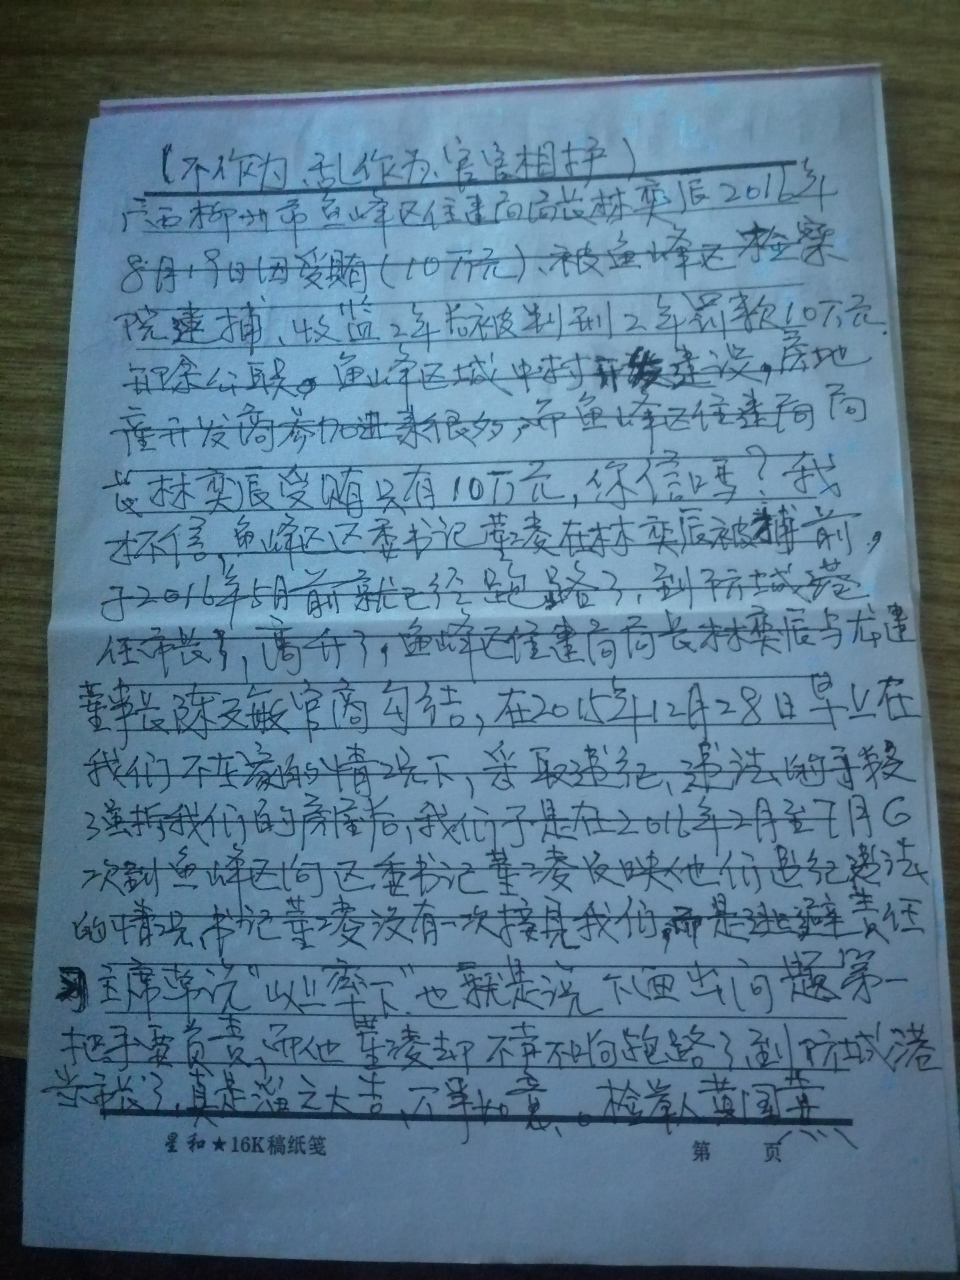 （不作为、乱作为、官官相护）
广西柳州市鱼峰区住建局局长林奕辰2016年
8月19日因受贿（10万元）、被鱼峰区检察
院逮捕、收监2年后被判刑2年罚款10万元.
开除公职。鱼峰区城中村开发建设，房地
产开发商参加进来很多，而鱼峰区住建局局
长林奕辰受贿只有10万元，你信吗？我
不信，鱼峰区区委书记董凌在林奕辰被捕前，
于2016年5月前就已经跑路了，到防城港
任市长了，高升了，鱼峰区住建局局长林奕辰与龙建
董事长陈文敏官商勾结，在2015年12月28日早上在
我们不在家的情况下，采取违纪、违法的手段
强拆我们的房屋后，我们于是在2016年2月至7月6
次到鱼峰区向区委书记董凌反映他们违纪违法
的情况，书记董凌没有一次接见我们，而是逃避责任
习主席常说“以上率下”也就是说下面出问题第一
把手要负责，而他董凌却不声不响跑路了到防城港
当市长了，真是滔之大吉、万事如意。检举人黄国
星和★16K稿纸笺
第 页